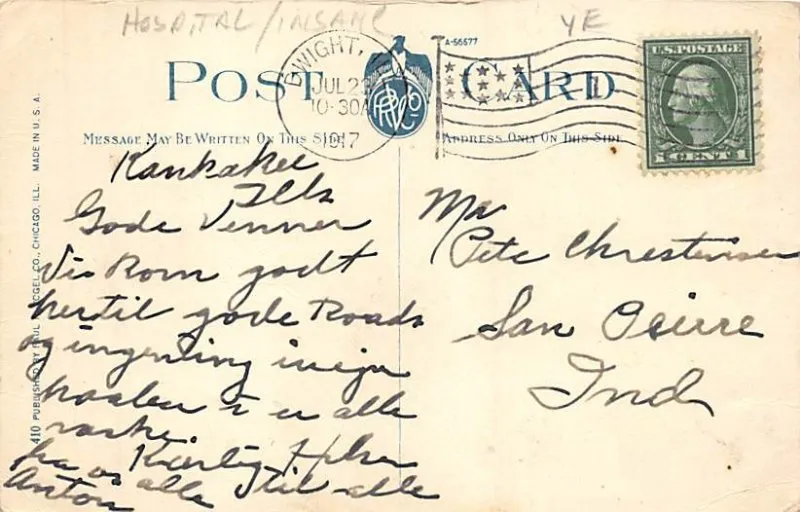 HOSPITAL/INSANE YE
POST CARD
A-56677
DWIGHT,
JUL 23
10-30A
1917
U.S. POSTAGE
1 CENT 1
MESSAGE MAY BE WRITTEN ON THIS SIDE
ADDRESS ONLY ON THIS SIDE
410 PUBLISHED BY PAUL CO., CHICAGO, ILL. MADE IN U. S. A.
Kankakee
Ills
Gode Venner
Vis Kom godt
hertil gode Roads
og ingenting ivejen
haaber i er alle
raske.
Kierlig Hilsen
fra os alle til alle
Anton
Mr
Pete Christensen
San Peirre
Ind